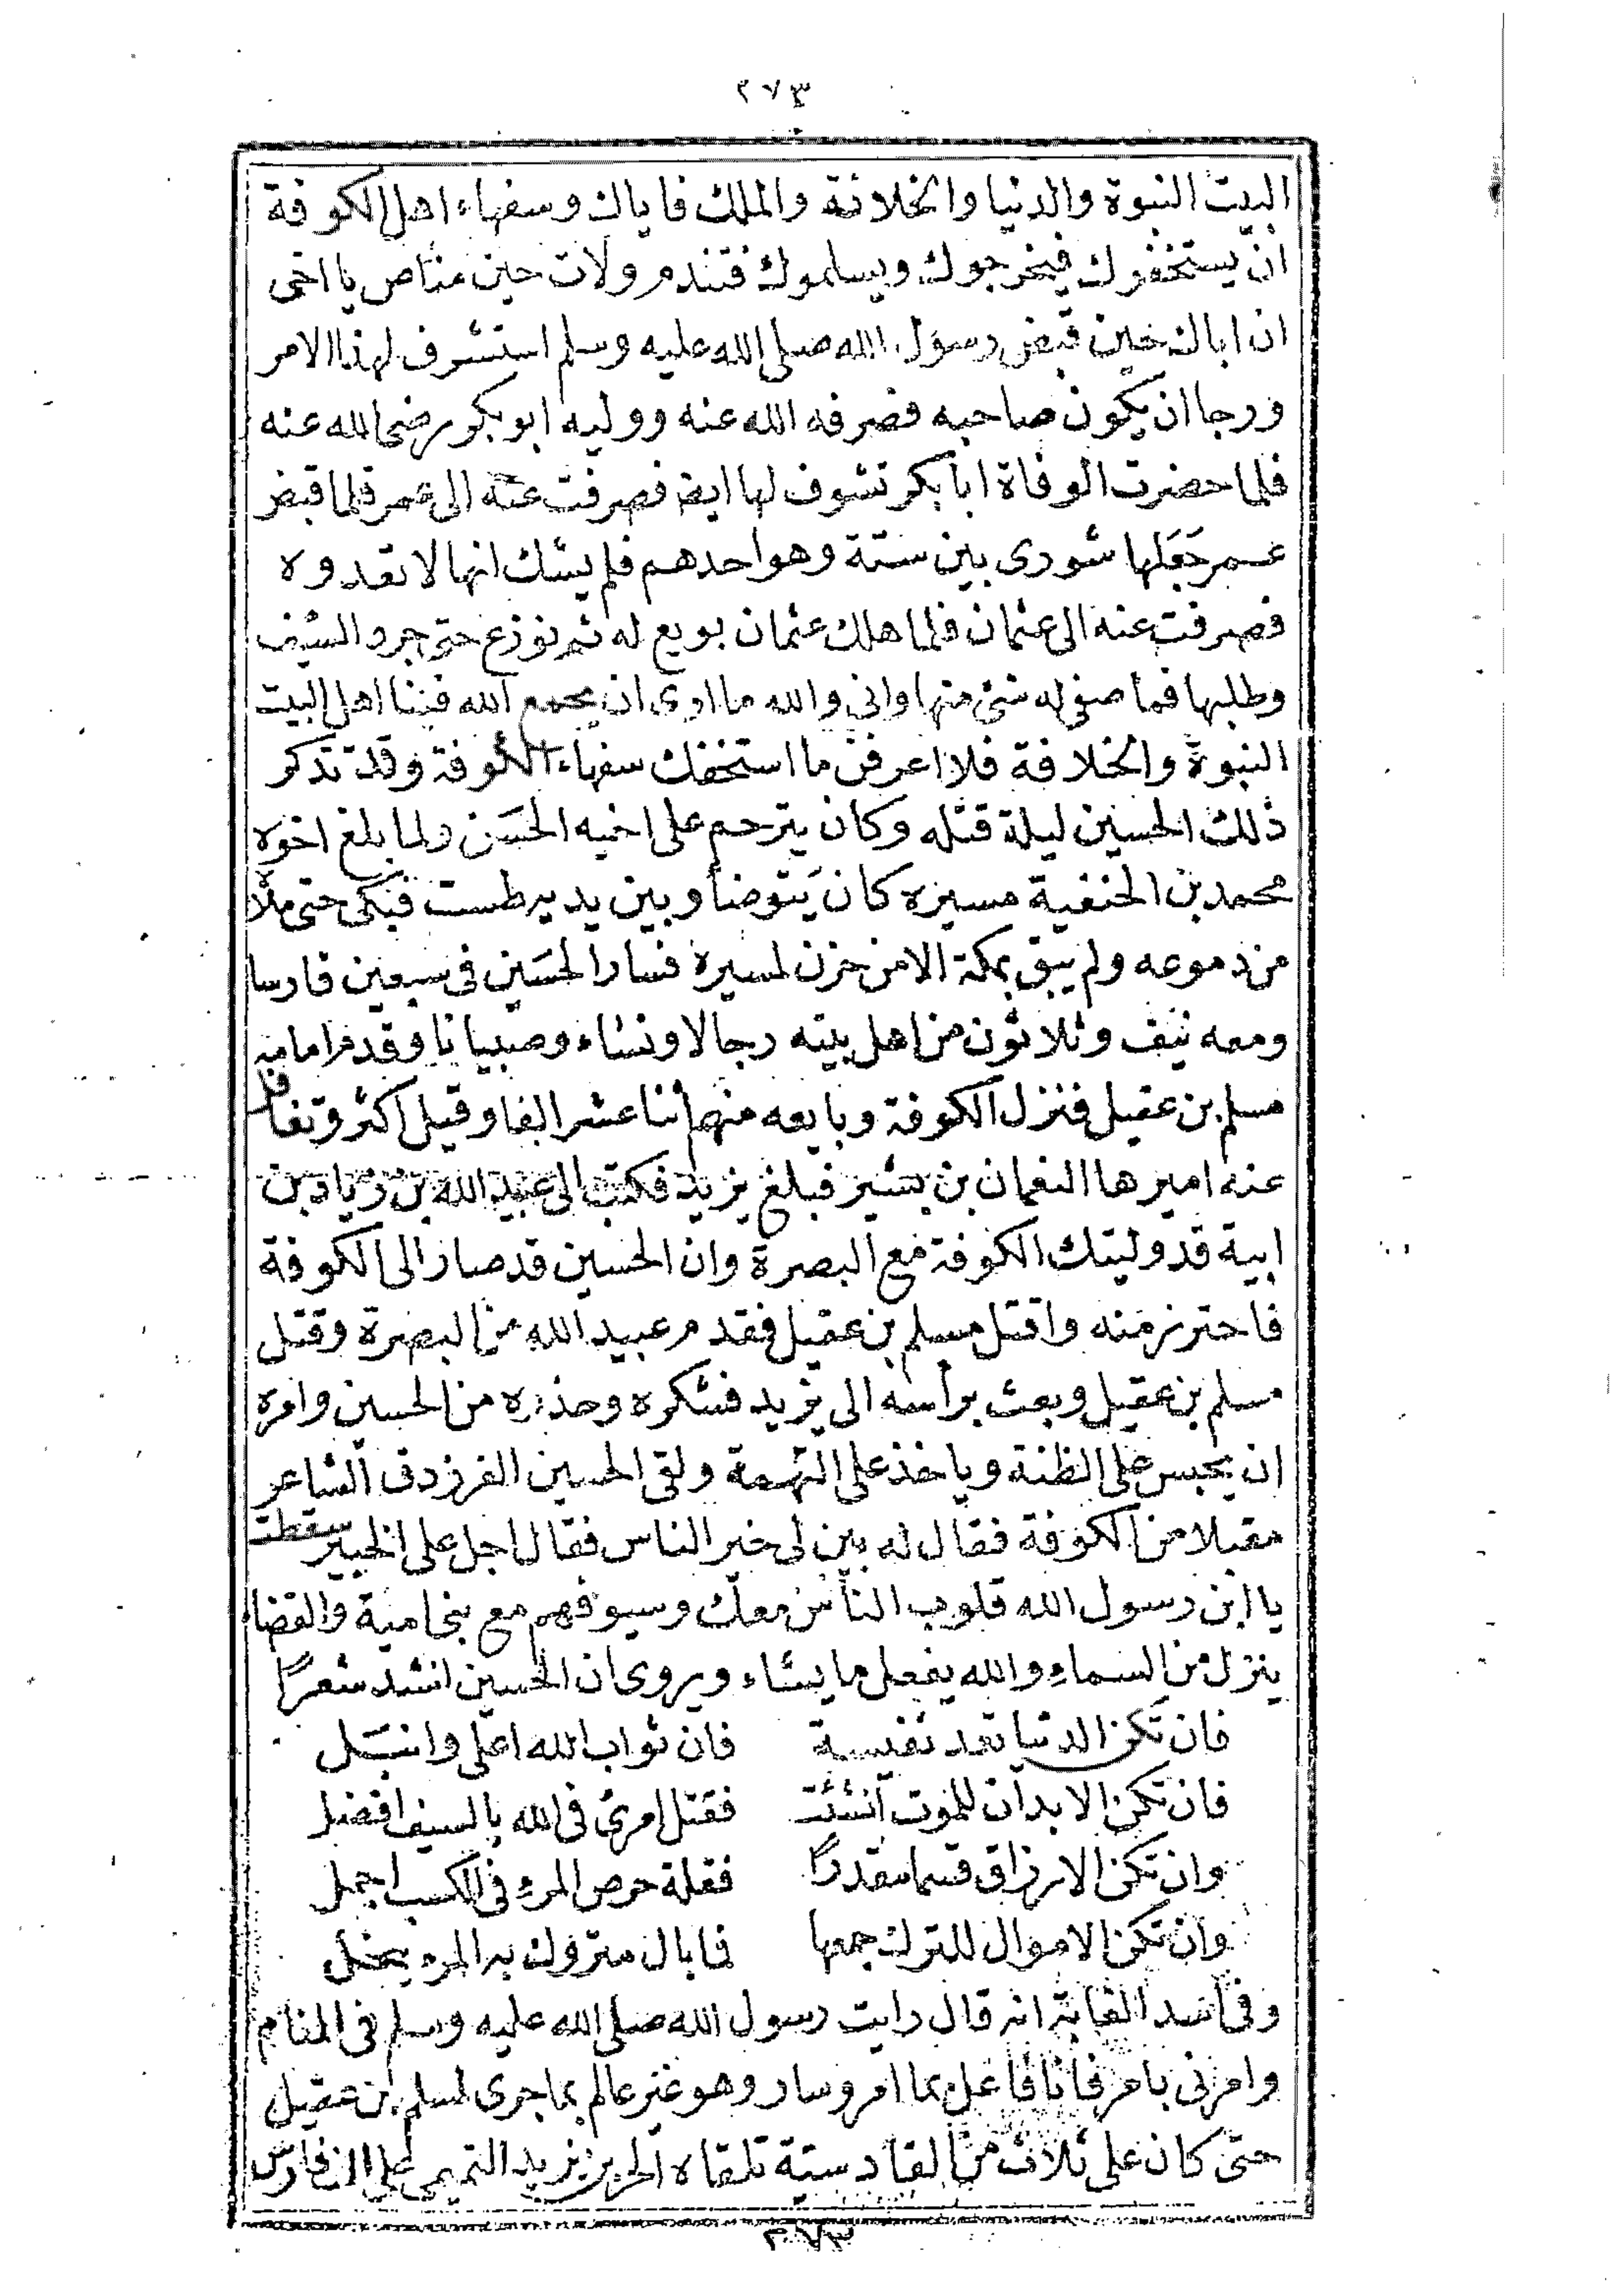 ٢٧٣
البيت النبوة والدنيا والخلافة والملك فاياك وسفهاء اهل الكوفة
ان يستخفوك فيخرجوك ويسلموك فتندم ولات حين مناص يا اخى
ان اباك حين قبض رسول الله صلى الله عليه وسلم استشرف لهذا الامر
ورجا ان يكون صاحبه فصرفه الله عنه ووليه ابو بكر رضى الله عنه
فلما حضرت الوفاة ابا بكر تشوف لها ايضا فصرفت عنه الى عمر فلما قبض
عمر جَعَلها شورى بين ستة وهو احدهم فلم يشك انها لا تعدوه
فصرفت عنه الى عثمان فلما هلك عثمان بويع له ثم نوزع حتى جرد السيف
وطلبها فما صفى له شئ منها وانى والله ما ارى ان يجمع الله فينا اهل البيت
النبوة والخلافة فلا اعرفن ما استخفك سفهاء الكوفة وقد تذكر
ذلك الحسين ليلة قتله وكان يترحم على اخيه الحسَن ولما بلغ اخوه
محمد بن الحنفية مسيره كان يَتوضأ وبين يديه طست فبكى حتى ملأ
من دموعه ولم يبق بمكة الا من حزن لمسيره فسار الحسَين فى سبعين فارسا
ومعه نيف وثلاثون من اهل بيته رجالا ونساء وصبيانا وقدم امامه
مسلم بن عقيل فنزل الكوفة وبايعه منهم اثنا عشر الفا وقيل اكثر وتغافل
عنه اميرها النعمان بن بشير فبلغ يزيد فكتب الى عبيد الله بن زياد بن
ابية قد وليتك الكوفة مع البصرة وان الحسين قد صار الى الكوفة
فاحترز منه واقتل مسلم بن عقيل فقدم عبيد الله من البصرة وقتل
مسلم بن عقيل وبعث برأسه الى يزيد فشكره وحذره من الحسين وامره
ان يحبس على الظنة وياخذ على التهمة ولقى الحسين الفرزدق الشاعر
مقبلا من الكوفة فقال له بين لى خبر الناس فقال اجل على الخبير سقطت
يا ابن رسول الله قلوب الناس معك وسيوفهم مع بنى امية والقضاء
ينزل من السماء والله يفعل ما يشاء ويروى ان الحسين انشد شعرًا
فان تكن الدنيا تعد نفيسة فان ثواب الله اعلى وانبَل
فان تكن الابدان للموت أنشئت فقتل امرئ فى الله بالسيف افضل
وان تكن الارزاق قسما مقدرًا فقلة حرص المرء فى الكسب اجمل
وان تكن الاموال للترك جمعها فما بال متروك به المرء يبخل
وفى أسد الغابة انه قال رايت رسول الله صلى الله عليه وسلم فى المنام
وامرنى بامر فانا فاعل بما امر وسار وهو غير عالم بما جرى لمسلم بن عقيل
حتى كان على ثلاث من القادسية تلقاه الحر بن يزيد التميمى على الف فارس
٢٧٣